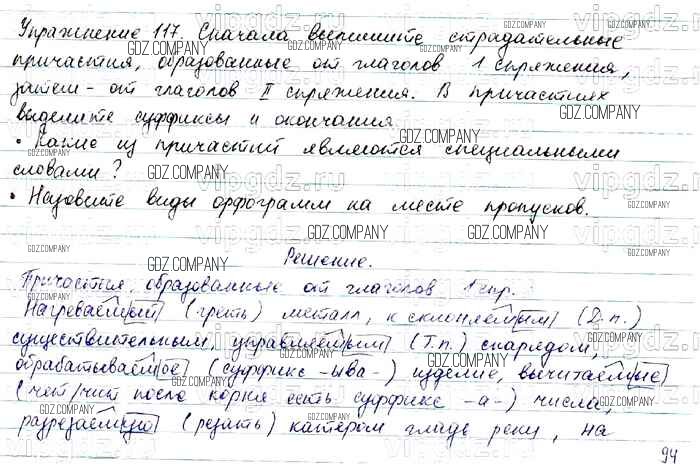 Упражнение 117. Сначала выпишите страдательные
причастия, образованные от глаголов 1 спряжения,
затем - от глаголов II спряжения. В причастиях
выделите суффиксы и окончания.
• Какие из причастий являются специальными
словами?
• Назовите виды орфограмм на месте пропусков.
Решение.
Причастия, образованные от глаголов 1 спр.
Нагреваемый (греть) металл, к склоняемым (Д.п.)
существительным, управляемым (Т.п.) снарядом,
обрабатываемое (суффикс -ыва-) изделие, вычитаемые
(чет/чит после корня есть суффикс -а-) числа,
разрезаемую (резать) катером гладь реки, на
94
GDZ.COMPANY
vipgdz.ru